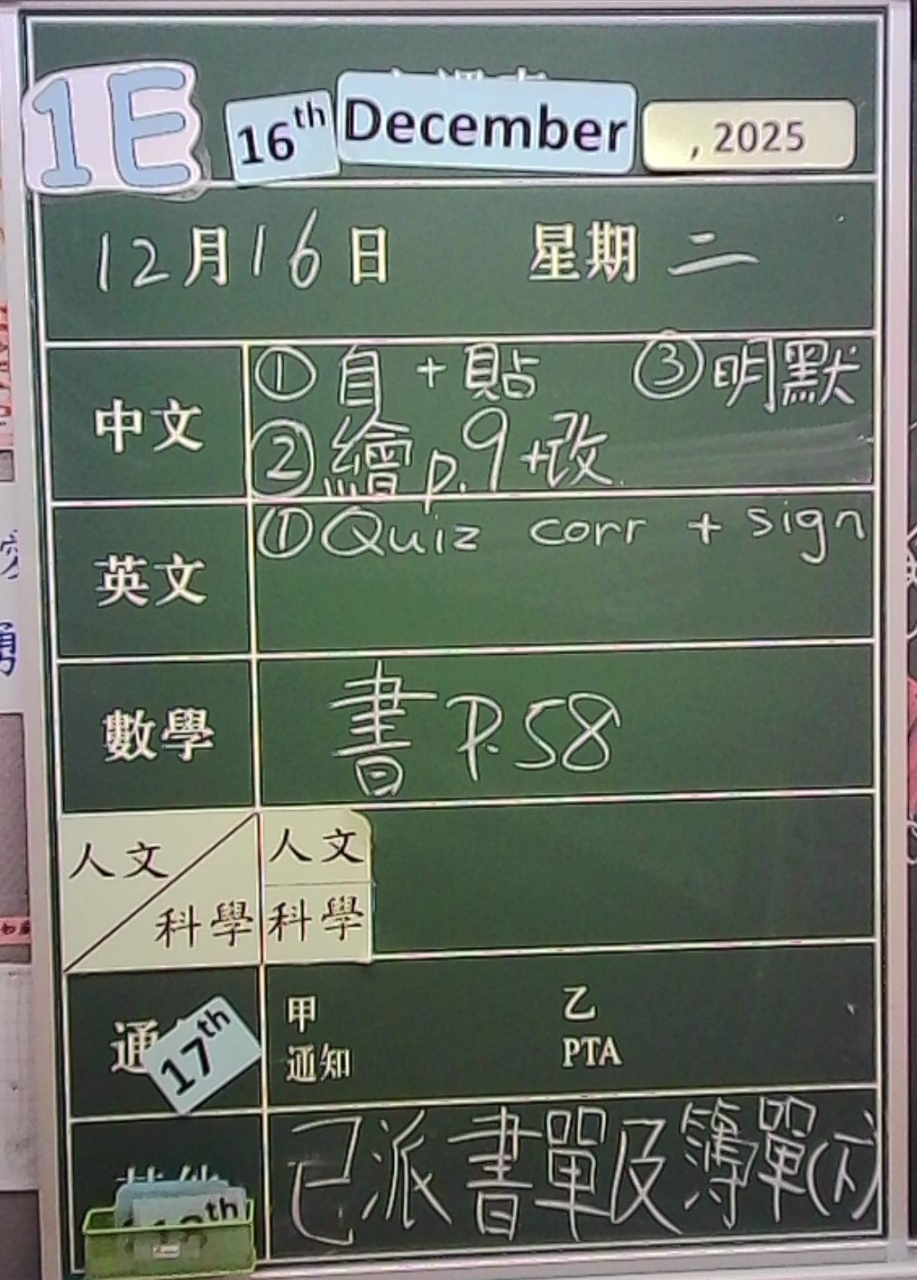 1E 16th December , 2025
12月16日 星期二
中文 ①自+貼 ③明默
②繪p.9+改
英文 ①Quiz corr + sign
數學 書P.58
人文 人文
科學 科學
通 17th 甲 乙
通知 PTA
已派書單及簿單(下)